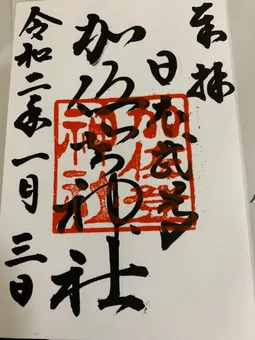 奉拝
日本武尊
加佐登神社
加佐登
神社
令和二年一月三日